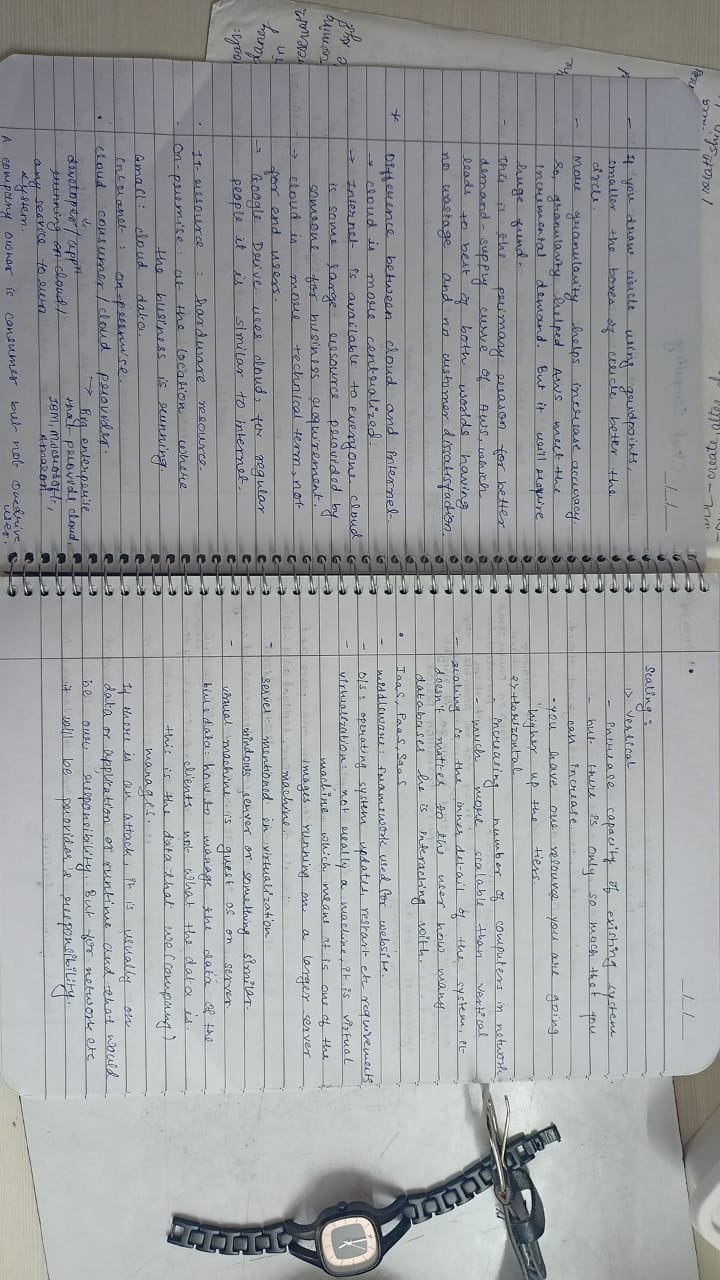 - If you draw circle using gridpoints,
smaller the boxes of circle better the
circle.
- More granularity helps increase accuracy.
So, granularity helped AWS meet the
incremental demand. But it will require
huge fund.
- This is the primary reason for better
demand-supply curve of AWS which
leads to best of both worlds having
no wastage and no customer dissatisfaction.
* Difference between cloud and Internet-
→ cloud is more centralized.
→ Internet is available to everyone cloud
is some large resource provided by
someone for business requirement.
→ cloud is more technical term, not
for end users.
→ Google Drive uses cloud, for regular
people it is similar to internet.
• It resource : hardware resource.
• On-premise : at the location where
the business is running.
Gmail : cloud data.
Intranet : on-premise.
• cloud consumer / cloud provider.
↓ → Big enterprise
developer / appn that provide cloud,
running on cloud / IBM, Microsoft,
any service to run Amazon
system.
A company owner is consumer but not onedrive
user.
Scaling :
1> Vertical
- Increase capacity of existing system
- but there is only so much that you
can increase
- you have one resource you are going
higher up the tiers.
2> Horizontal
- increasing number of computers in network
- much more scalable than vertical
- scaling is the inner detail of the system, it
doesn't matter to the user how many
databases he is interacting with.
• IaaS, PaaS, SaaS
- middleware: framework used for website.
- O/s : operating system updates, restart etc requirements
- virtualization: not really a machine, it is virtual
machine which means it is one of the
images running on a larger server
machine.
- server mentioned in virtualization
windows server or something similar.
- virtual machine is guest os on server
business data: how to manage the data of the
clients not what the data is.
this is the data that we (company)
manages.
If there is an attack, it is usually on
data or application or runtime and that would
be our responsibility. But for network etc
it will be provider's responsibility.